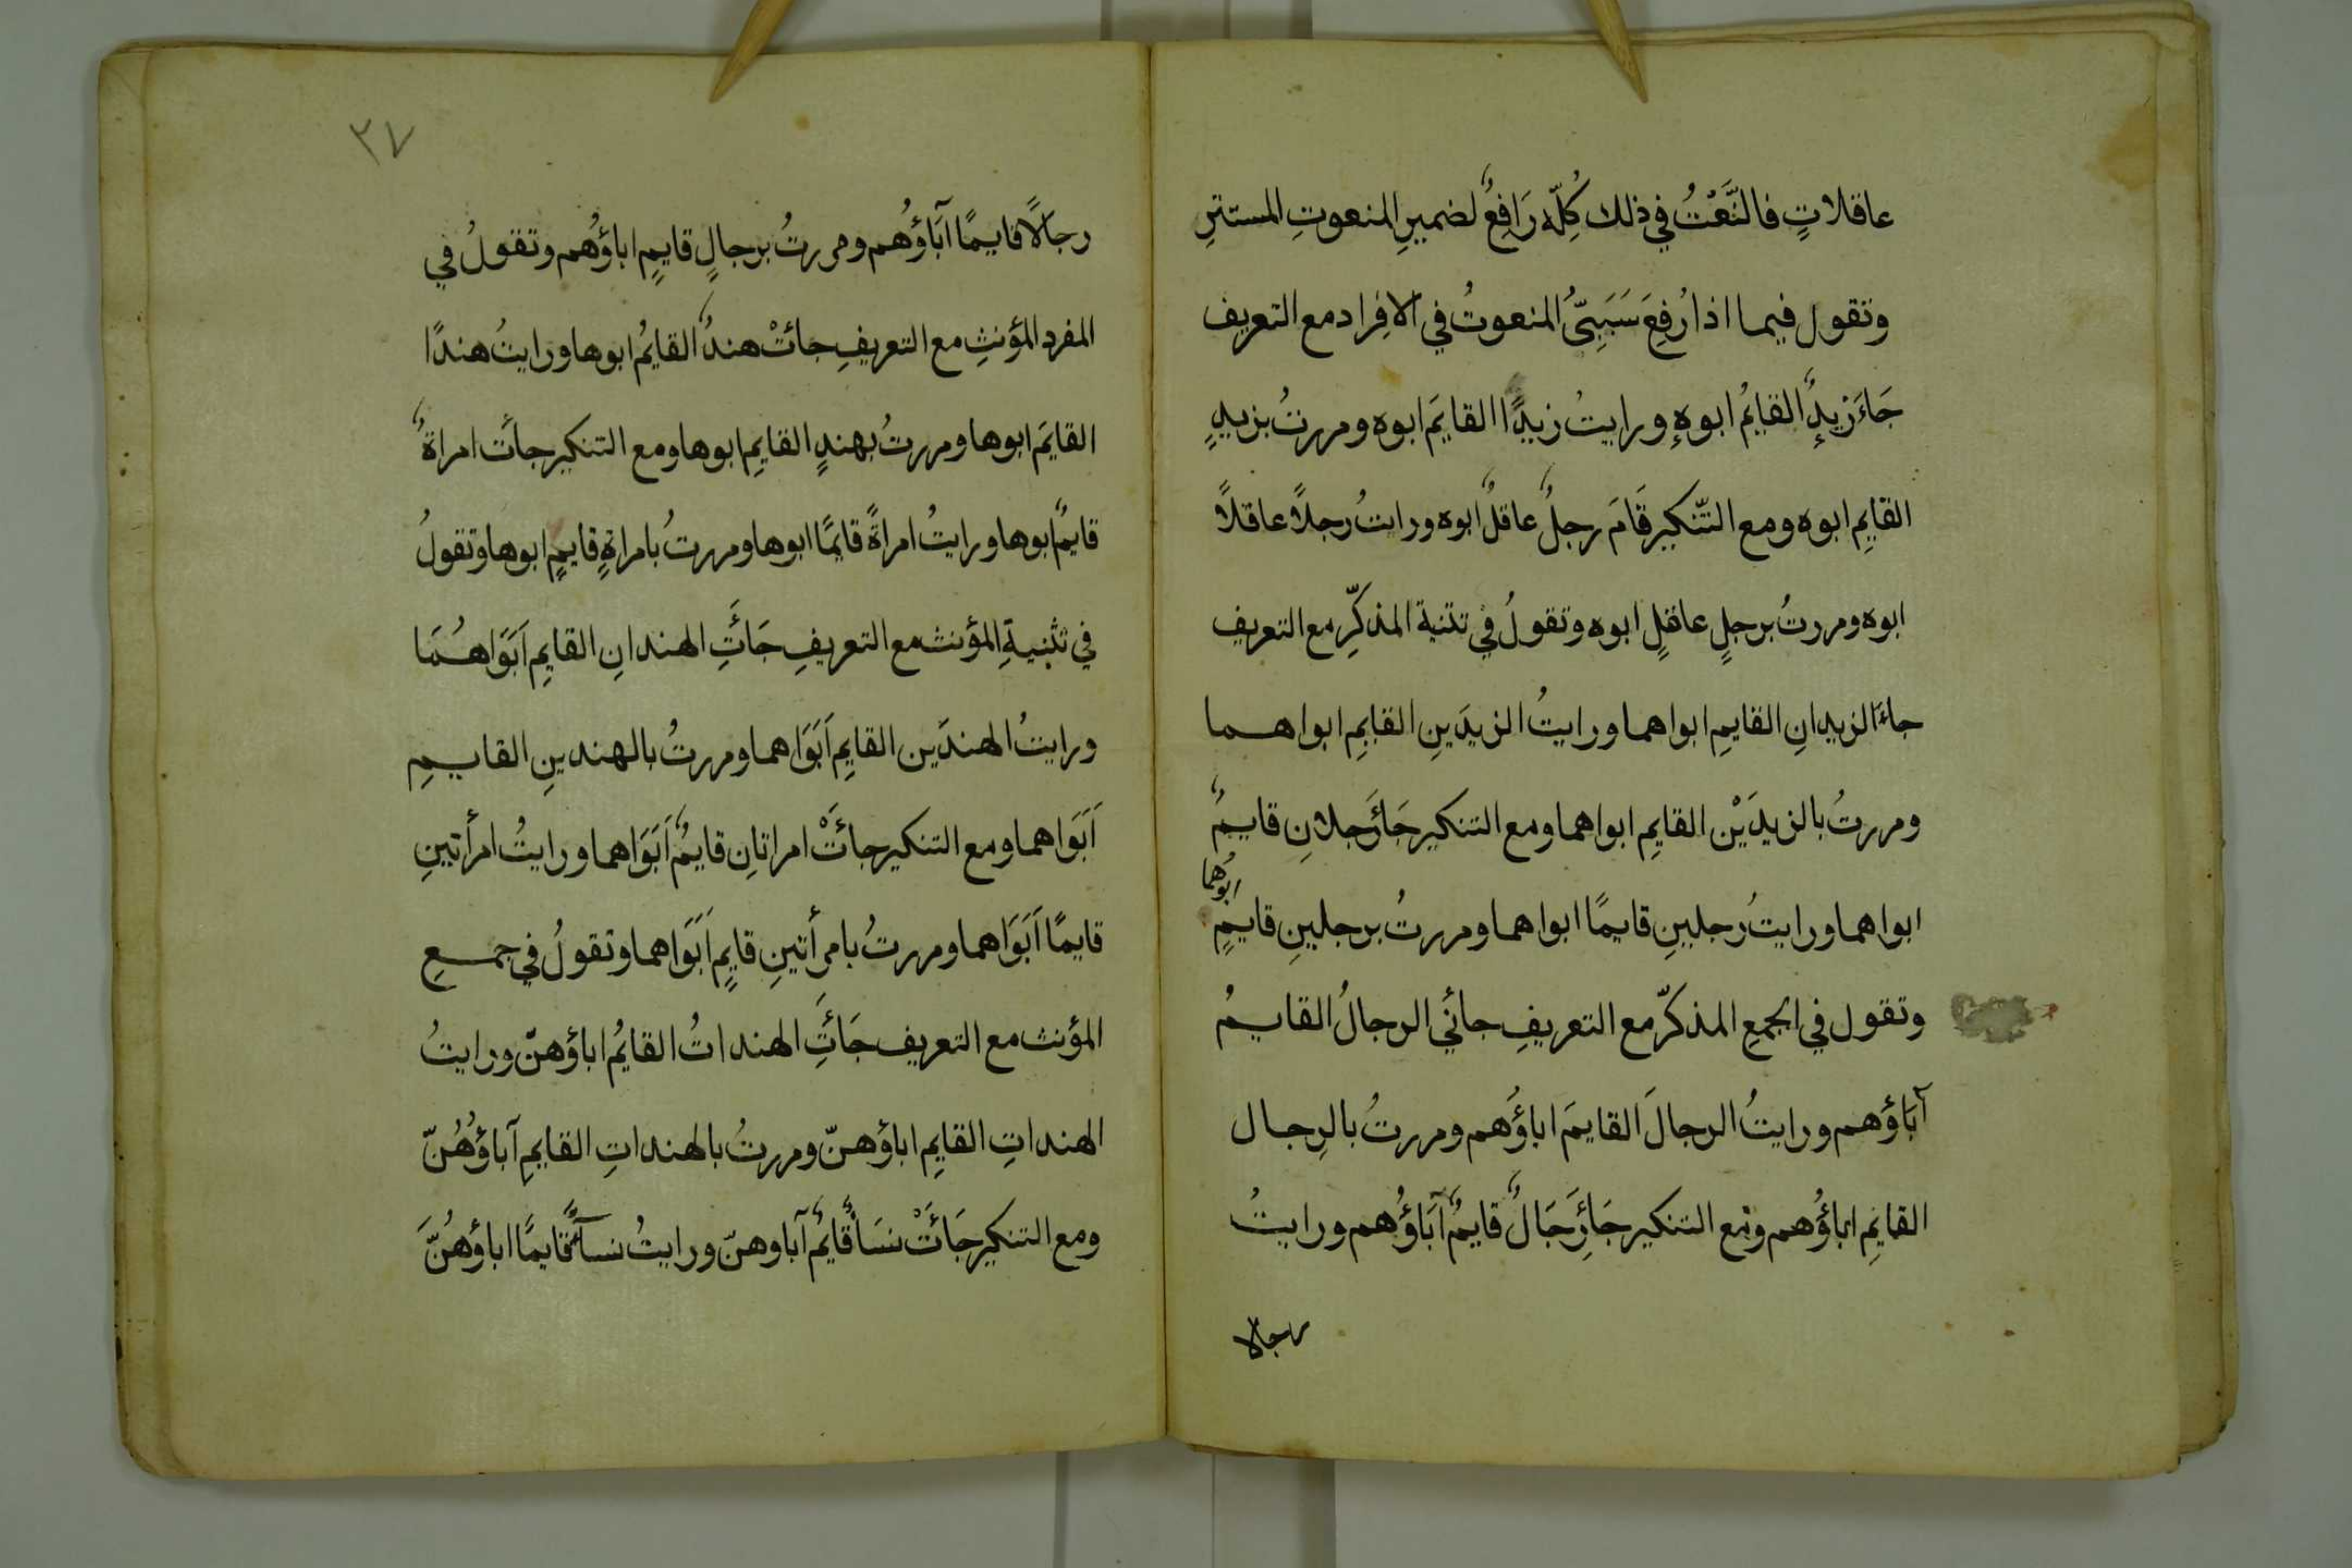 عاقلاتٍ فالنَّعْتُ في ذلك كُلِّه رَافِعٌ لضميرِ المنعوتِ المستترِ
وتقول فيما اذا رُفِعَ سَبَبِىُّ المنعوتُ في الافِراد مع التعريف
جَاءَ زيدٌ القايمُ ابوه ورايتُ زيدًا القايمَ ابوه ومررتُ بزيدٍ
القايمِ ابوه ومع التّنكير قَامَ رجلٌ عاقلٌ ابوه ورايتُ رجلاً عاقلاً
ابوه ومررتُ برجلٍ عاقلٍ ابوه وتقولُ في تثنية المذكّرِ مع التعريف
جاءَ الزيدانِ القايمِ ابواهما ورايتُ الزيدَينِ القايمِ ابواهما
ومررتُ بالزيدَيْن القايمِ ابواهما ومع التنكير جَاءَ رجلانِ قايمٌ
ابواهما ورايتُ رجلينِ قايمًا ابواهما ومررتُ برجلينِ قايمٍ
ابوُهما
وتقول في الجمعِ المذكّر مع التعريفِ جائَني الرجالُ القايمُ
آبَاؤهم ورايتُ الرجالَ القايمَ اباؤُهم ومررتُ بالرِجال
القايمِ اباؤُهم ومع التنكير جَاءَ رِجَالٌ قايمٌ آبَاؤُهم ورايتُ
رجالا
٣٧
رجالًا قايمًا آبَاؤُهم ومررتُ برجالٍ قايمٍ اباؤُهم وتقولُ في
المفردِ المؤنثِ مع التعريفِ جائتْ هندٌ القايمُ ابوها ورايتُ هندًا
القايمَ ابوها ومررتُ بهندٍ القايمِ ابوها ومع التنكير جائَت امراةٌ
قايمٌ ابوها ورايتُ امراةً قايمًا ابوها ومررتُ بامراةٍ قايمٍ ابوها وتقولُ
في تثنيةِ المؤنث مع التعريفِ جَائَتِ الهندانِ القايمِ اَبَوَاهُمَا
ورايتُ الهندَين القايمِ اَبَوَاهما ومررتُ بالهندينِ القايمِ
اَبَوَاهما ومع التنكير جائَتْ امراتانِ قايمٌ اَبَوَاهما ورايتُ امرأتينِ
قايمًا اَبَوَاهما ومررتُ بامرأتينِ قايمٍ اَبَوَاهما وتقولُ في جمعِ
المؤنث مع التعريف جَائَتِ الهنداتُ القايمُ اباؤهنّ ورايتُ
الهنداتِ القايمِ اباؤهنّ ومررتُ بالهنداتِ القايمِ آباؤُهُنّ
ومع التنكير جَائَتْ نسَاءٌ قايمٌ آباوهنّ ورايتُ نساءً قايمًا اباؤهُنَّ